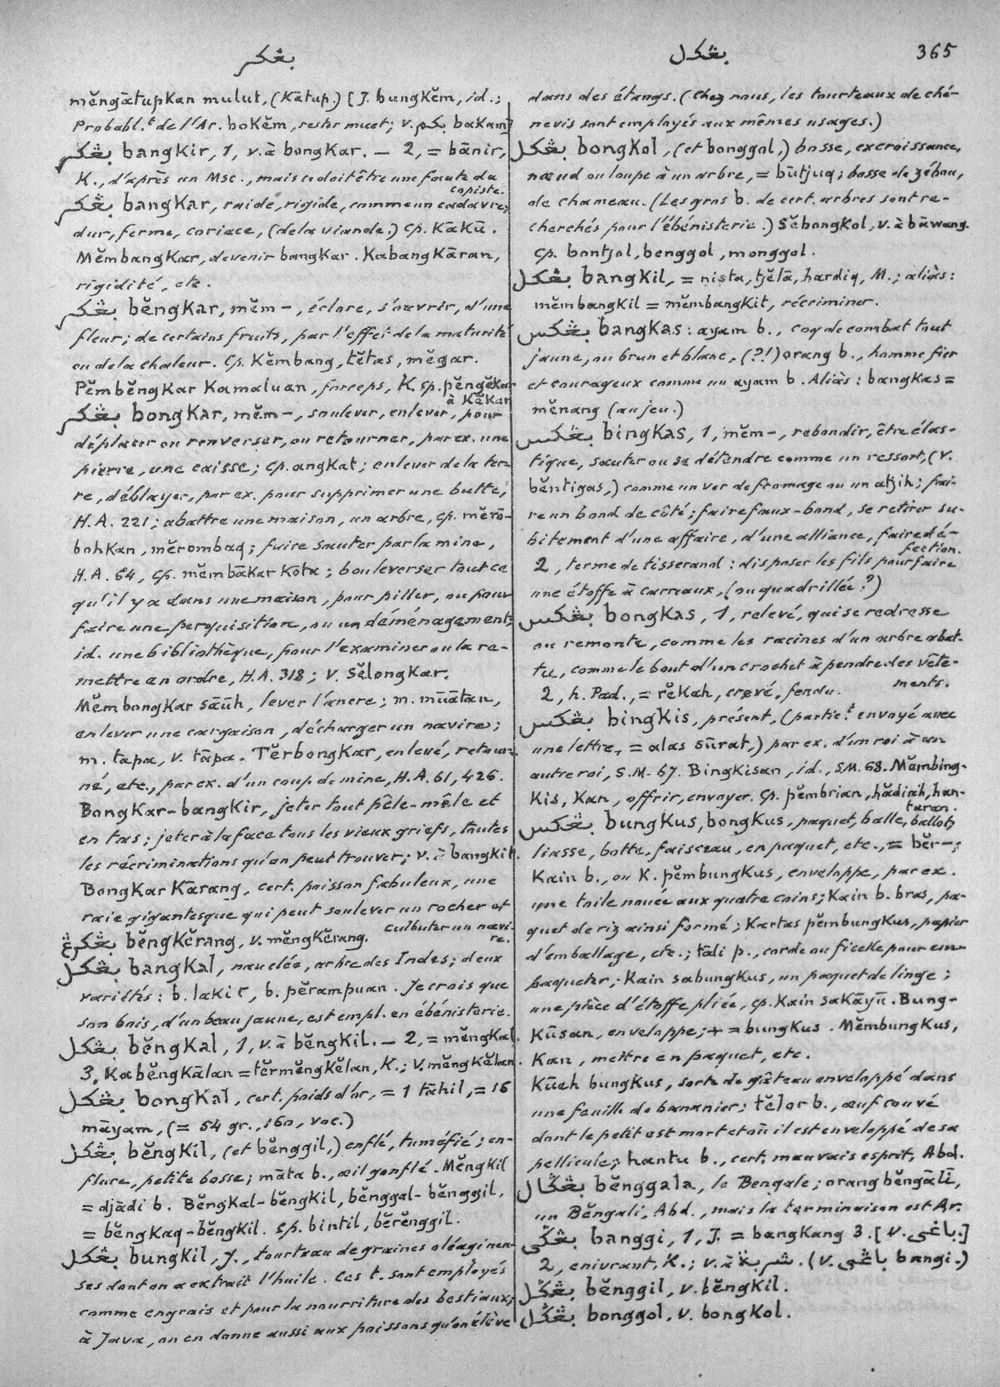 بڠكر
بڠكل
365
mĕngātupkan mulut, (Kātup.) [J. bungkĕm, id.;
Probabl.t de l'Ar. bokĕm, rester muet; v. بكم bakam]
بڠكر bangkir, 1, v. à bongkar. — 2, = bānir,
K., d'après un Msc., mais ce doit être une faute du
copiste.
بڠكر bangkar, raide, rigide, comme un cadavre;
dur, ferme, coriace, (de la viande.) Cp. Kākū.
Mĕmbangkar, devenir bangkar. Kabangkāran,
rigidité, etc.
بڠكر bĕngkar, mĕm–, éclore, s'ouvrir, d'une
fleur; de certains fruits, par l'effet de la maturité
ou de la chaleur. Cp. Kĕmbang, tĕtas, mĕgar.
Pĕmbĕngkar Kamaluan, forceps, K. Cp. pĕngĕkar
à Kĕkar
بڠكر bongkar, mĕm–, soulever, enlever, pour
déplacer ou renverser, ou retourner, par ex. une
pierre, une caisse; cp. angkat; enlever de la ter-
re, déblayer, par ex. pour supprimer une butte,
H.A. 221; abattre une maison, un arbre, cp. mĕro-
bohkan, mĕrombaq; faire sauter par la mine,
H.A. 64, cp. mĕmbākar Kota; bouleverser tout ce
qu'il y a dans une maison, pour piller, ou pour
faire une perquisition, ou un déménagement;
id. une bibliothèque, pour l'examiner ou la re-
mettre en ordre, H.A. 318; v. Sĕlongkar.
Mĕmbongkar sāūh, lever l'ancre; m. mūātan,
enlever une cargaison, décharger un navire;
m. tāpa, v. tāpa. Tĕrbongkar, enlevé, retour-
né, etc., par ex. d'un coup de mine, H.A. 61, 426.
Bongkar-bangkir, jeter tout pêle-mêle et
en tas; jeter à la face tous les vieux griefs, toutes
les récriminations qu'on peut trouver; v. à bangkit.
Bongkar Kārang, cert. poisson fabuleux, une
raie gigantesque qui peut soulever un rocher et
culbuter un navi-
re.
بڠكرڠ bĕngkĕrang, v. mĕngkĕrang.
بڠكل bangkal, nauclée, arbre des Indes; deux
variétés: b. lakit, b. pĕrampuan. Je crois que
son bois, d'un beau jaune, est empl. en ébénisterie.
بڠكل bĕngkal, 1, v. à bĕngkil. — 2, = mĕngkal.
3, Kabĕngkālan = tĕrmĕngkĕlan, K.; v. mĕngkĕlan.
بڠكل bongkal, cert. poids d'or, = 1 tāhil, = 16
māyam, (= 54 gr., 160, voc.)
بڠكل bĕngkil, (et bĕnggil,) enflé, tuméfié; en-
flure, petite bosse; māta b., œil gonflé. Mĕngkil
= djādi b. Bĕngkal-bĕngkil, bĕnggal-bĕnggil,
= bĕngkaq-bĕngkil. Cp. bintil, bĕrĕnggil.
بڠكل bungkil, J., tourteau de graines oléagineu-
ses dont on a extrait l'huile. Ces t. sont employés
comme engrais et pour la nourriture des bestiaux;
à Java, on en donne aussi aux poissons qu'on élève
dans des étangs. (Chez nous, les tourteaux de ché-
nevis sont employés aux mêmes usages.)
بڠكل bongkol, (et bonggol,) bosse, excroissance,
nœud ou loupe à un arbre, = būtjuq; bosse de zébou,
de chameau. (Les gros b. de cert. arbres sont re-
cherchés pour l'ébénisterie.) Sĕbongkol, v. à bāwang.
Cp. bontjol, benggol, monggol.
بڠكل bangkil, = nista, tjĕlā, hardiq, M.; aliàs:
mĕmbangkil = mĕmbangkit, récriminer.
بڠكس bangkas: ayam b., coq de combat tout
jaune, ou brun et blanc, (?!) orang b., homme fier
et courageux comme un ayam b. Aliàs: bangkas =
mĕnang (au jeu.)
بڠكس bingkas, 1, mĕm–, rebondir, être élas-
tique, sauter ou se détendre comme un ressort, (v.
bĕntigas,) comme un ver de fromage ou un atjih; fai-
re un bond de côté; faire faux-bond, se retirer su-
bitement d'une affaire, d'une alliance, faire dé-
fection.
2, terme de tisserand: disposer les fils pour faire
une étoffe à carreaux, (ou quadrillée?)
بڠكس bongkas, 1, relevé, qui se redresse
ou remonte, comme les racines d'un arbre abat-
tu, comme le bout d'un crochet à pendre des vête-
ments.
2, h. Pad., = rĕkah, crevé, fendu.
بڠكس bingkis, présent, (partic.t envoyé avec
une lettre, = alas sūrat,) par ex. d'un roi à un
autre roi, S.M. 67. Bingkisan, id., S.M. 68. Mĕmbing-
kis, Kan, offrir, envoyer. Cp. pĕmbrian, hădiah, han-
taran.
بڠكس bungkus, bongkus, paquet, balle, ballot,
liasse, botte, faisceau, en paquet, etc., = bĕr–;
Kain b., ou K. pĕmbungkus, enveloppe, par ex.
une toile nouée aux quatre coins; Kain b. bras, pa-
quet de riz ainsi formé; Kartas pĕmbungkus, papier
d'emballage, etc.; tāli p., corde ou ficelle pour em-
paqueter; Kain sabungkus, un paquet de linge;
une pièce d'étoffe pliée, cp. Kain sakāyū. Bung-
Kūsan, enveloppe; + = bungkus. Mĕmbungkus,
Kan, mettre en paquet, etc.
Kūeh bungkus, sorte de gâteau enveloppé dans
une feuille de bananier; tĕlor b., œuf couvé
dont le petit est mort et où il est enveloppé de sa
pellicule; hantu b., cert. mauvais esprit, Abd.
بڠݢال bĕnggala, le Bengale; orang bĕngālī,
un Bĕngali, Abd., mais la terminaison est Ar.
بڠݢي banggi, 1, J. = bangkang 3. [v. باغى.]
2, enivrant, K.; v. à شربة. (v. باڠى bangi.)
بڠݢل bĕnggil, v. bĕngkil.
بڠݢل bonggol, v. bongkol.